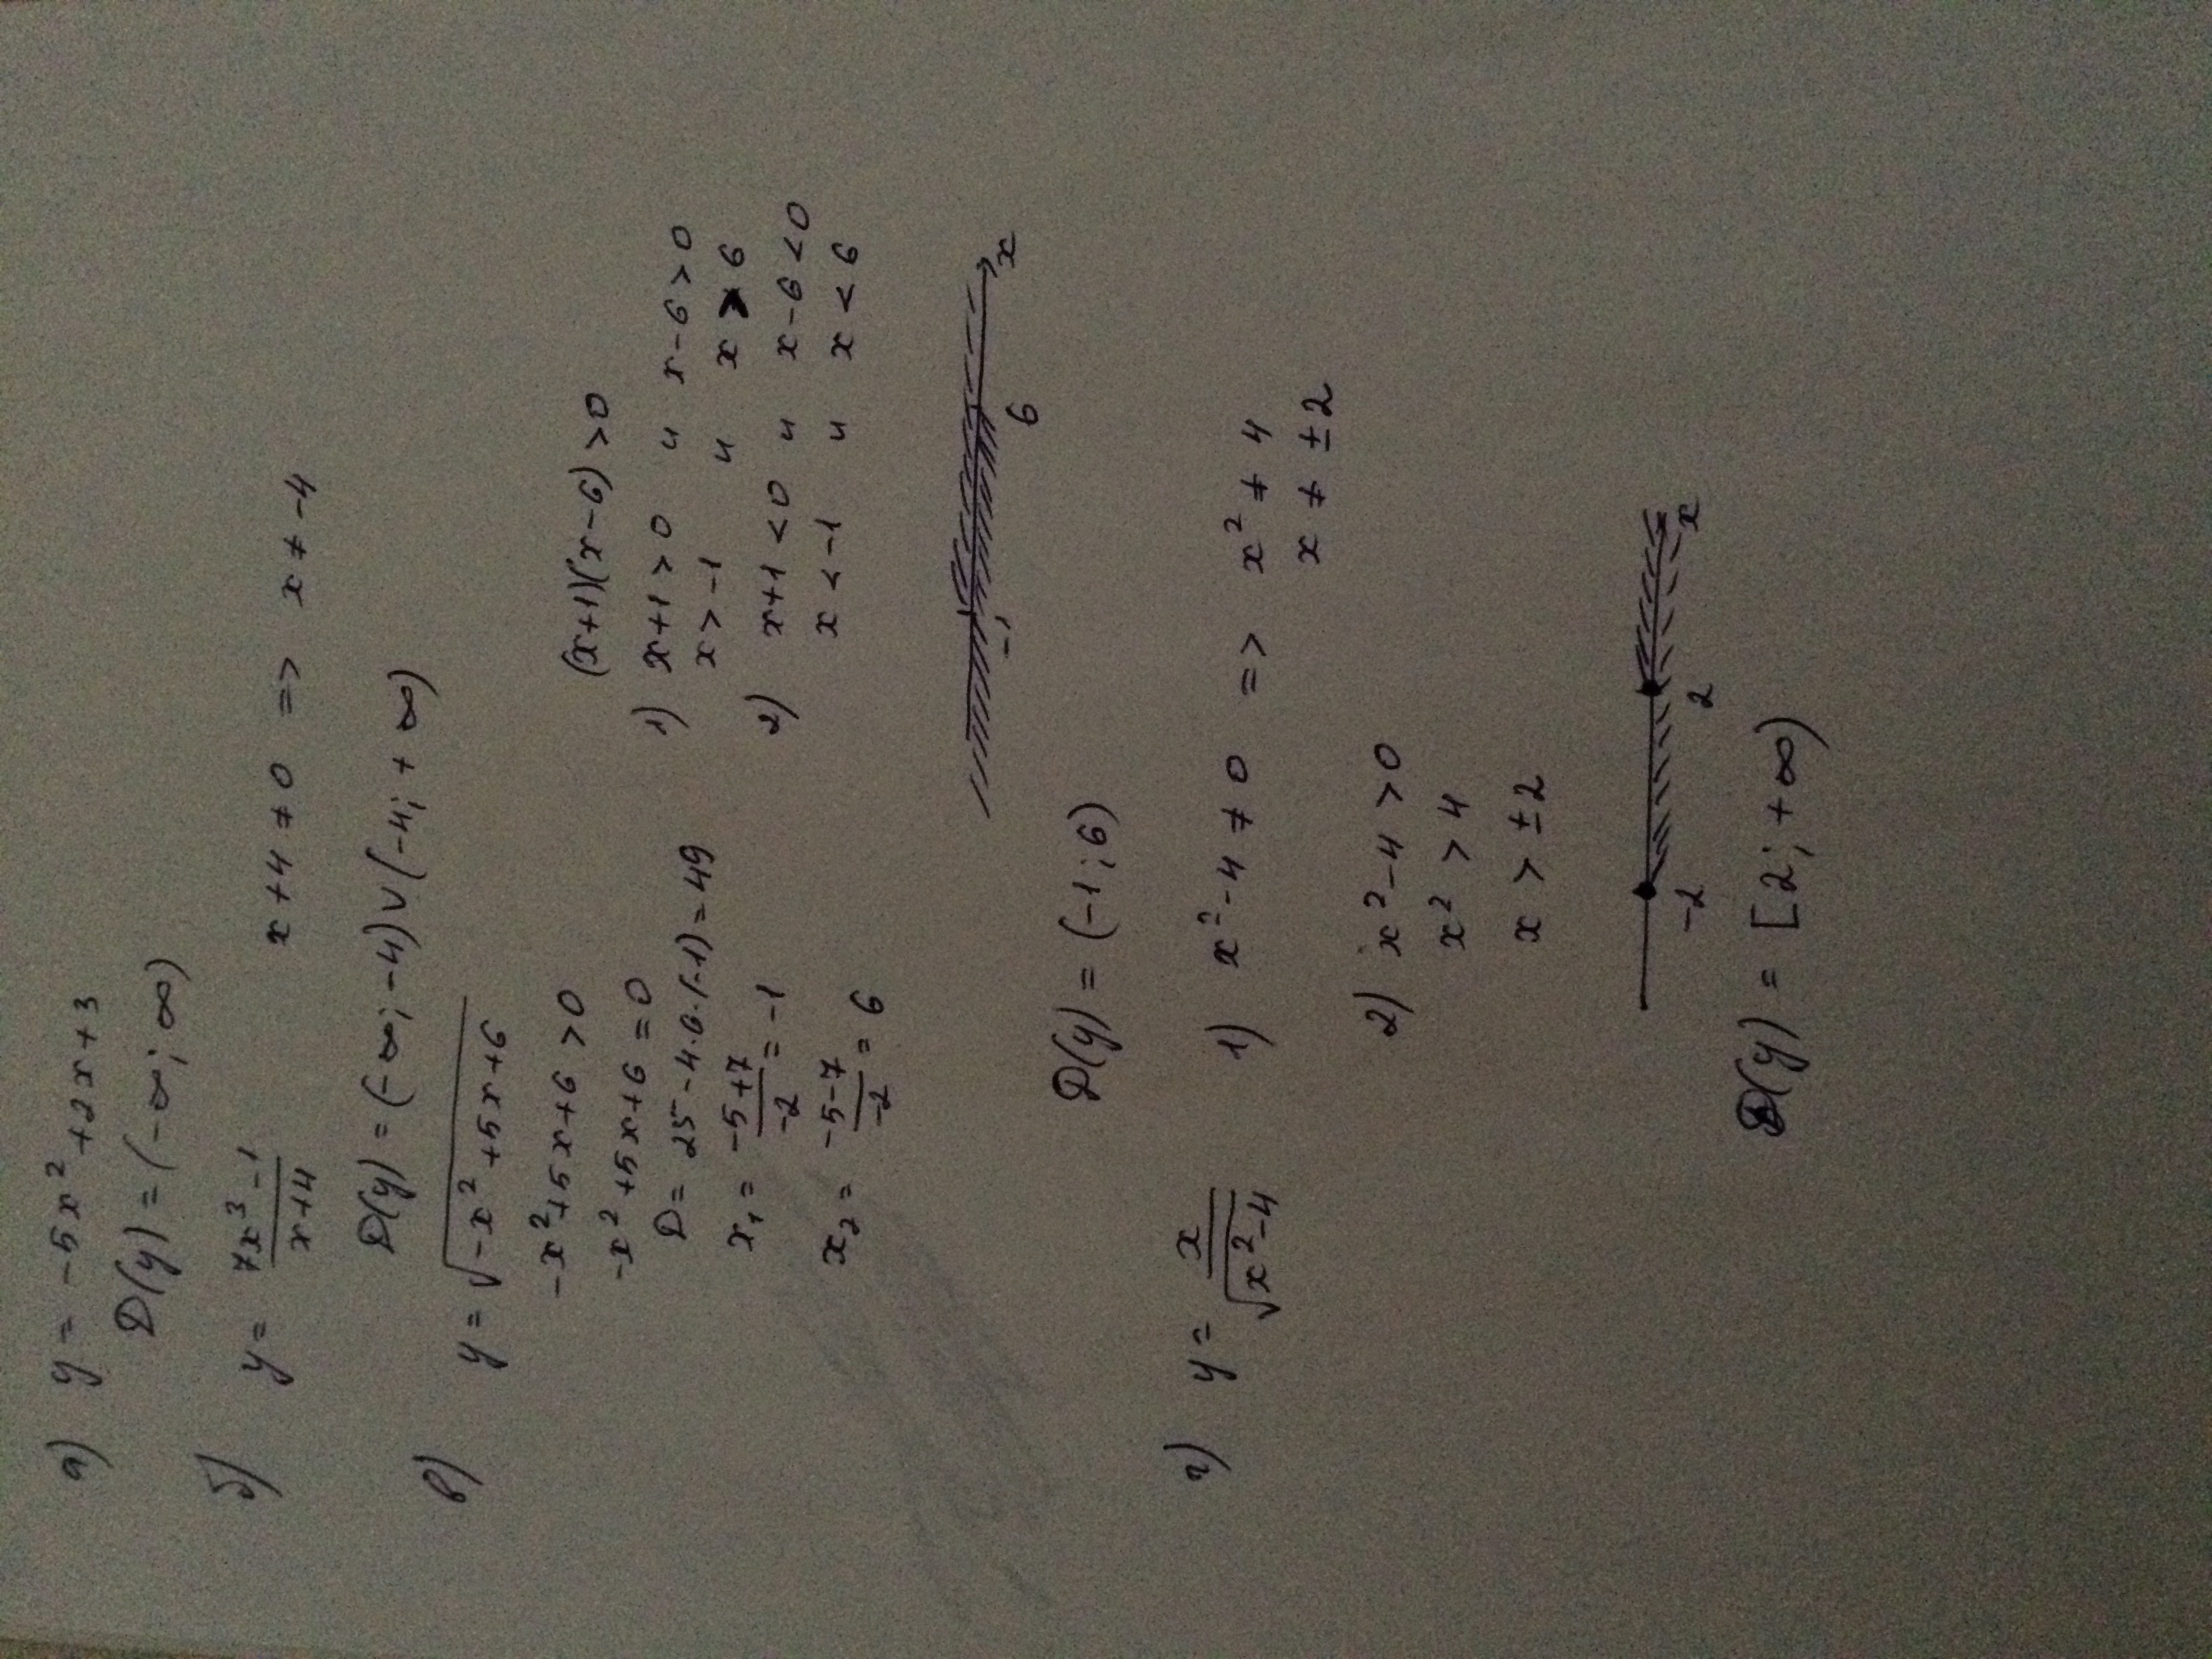 а) y = -5x² + 2x + 3
D(y) = (-∞; ∞)
б) y = (7x³ - 1)/(x+4)
x + 4 ≠ 0 => x ≠ -4
D(y) = (-∞; -4) ∪ (-4; +∞)
в) y = √(-x² + 5x + 6)
-x² + 5x + 6 > 0
-x² + 5x + 6 = 0
D = 25 - 4·6·(-1) = 49
x₁ = (-5+7)/(-2) = -1
x₂ = (-5-7)/(-2) = 6
(x+1)(x-6) > 0
1) x+1 > 0 и x-6 > 0
x > -1 и x > 6
2) x+1 < 0 и x-6 < 0
x < -1 и x < 6
-1 6 x
D(y) = (-1; 6)
г) y = x/√(x²-4)
1) x² - 4 ≠ 0 => x² ≠ 4
x ≠ ±2
2) x² - 4 > 0
x² > 4
x > ±2
-2 2 x
D(y) = [2; +∞)